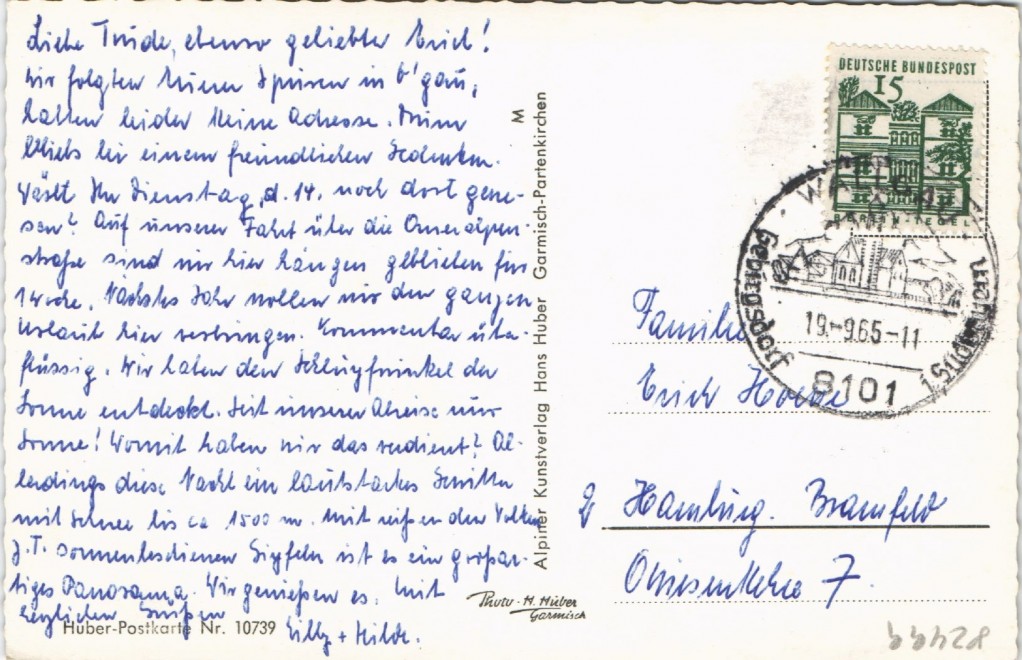 Liebe Trude, ebenso geliebter Erich!
Wir folgten Euren Spuren in G'gau,
hatten leider keine Adresse. Drum
blieb's bei einem freundlichen Gedenken.
Wäret Ihr Dienstag, d. 14. noch dort gewe-
sen? Auf unserer Fahrt über die Queralpen-
straße sind wir hier hängen geblieben für
1 Woche. Nächstes Jahr wollen wir den ganzen
Urlaub hier verbringen. Kommentar über-
flüssig. Wir haben den Schlupfwinkel der
Sonne entdeckt. Seit unserer Abreise nur
Sonne! Womit haben wir das verdient? Al-
lerdings diese Nacht ein lautstarkes Gewitter
mit Schnee bis ca 1500 m. Mit weißen Wolken
z.T. sonnenbeschienenen Gipfeln ist es ein großar-
tiges Panorama. Wir genießen es. Mit
herzlichen Grüßen
Cilly + Hilde.
Huber-Postkarte Nr. 10739
Alpiner Kunstverlag Hans Huber Garmisch-Partenkirchen M
Photo-H. Huber
Garmisch
DEUTSCHE BUNDESPOST
15
BERLIN-TEGEL
WALLGAU
19.-9.65-11
Gebirgsdorf
8101
Familie
Erich
2 Hamburg. Bramfeld
7.